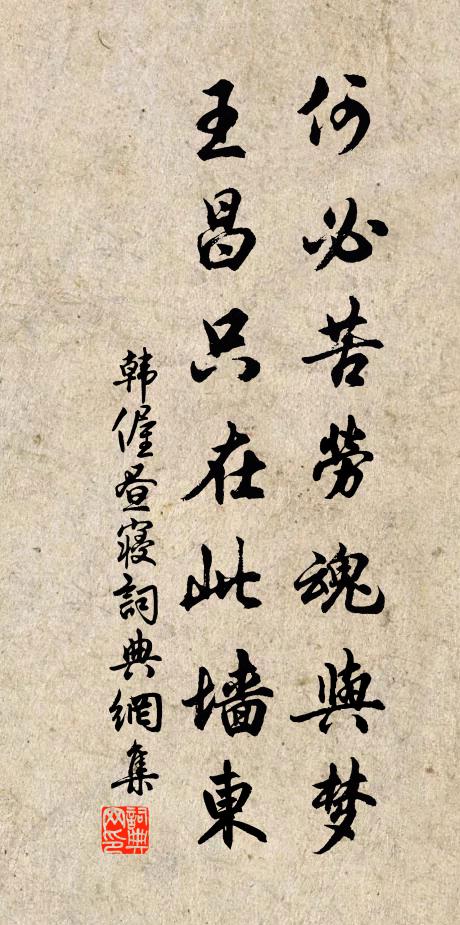 何必苦勞魂與梦
王昌只在此墻東
韩偓昼寝詞典網集
詞典网印